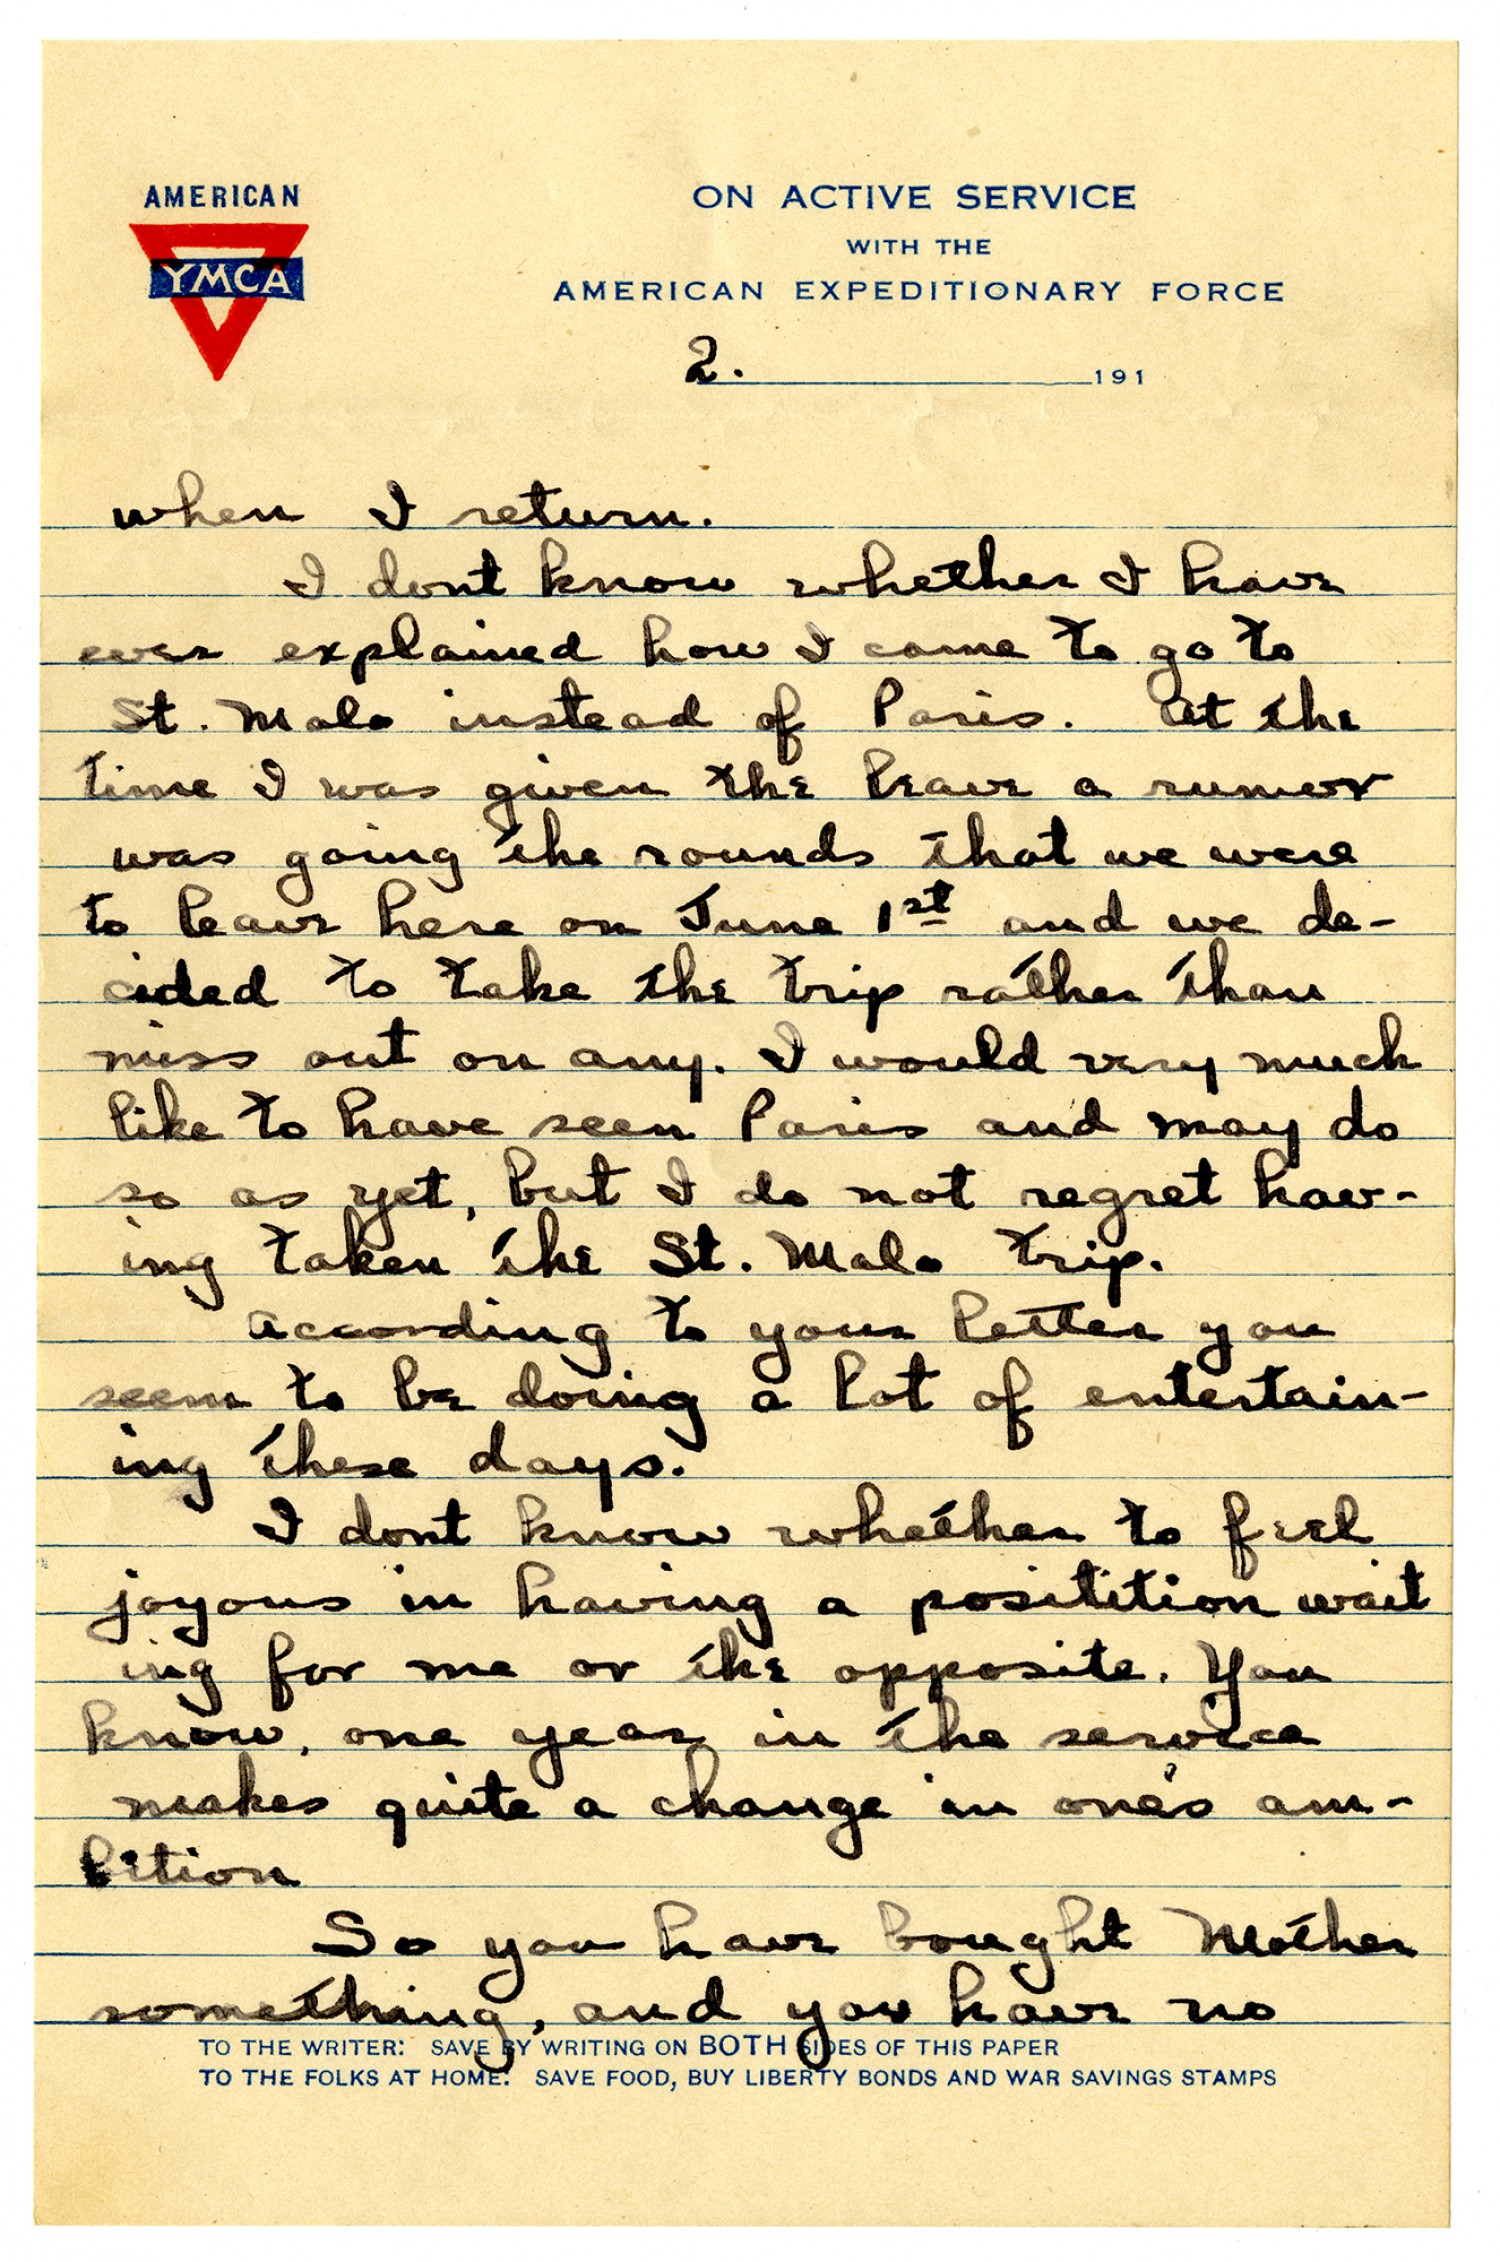 AMERICAN
YMCA
ON ACTIVE SERVICE
WITH THE
AMERICAN EXPEDITIONARY FORCE
2. 191
when I return.
I dont know whether I have
ever explained how I came to go to
St. Malo instead of Paris. At the
time I was given the leave a rumor
was going the rounds that we were
to leave here on June 1st and we de-
cided to take the trip rather than
miss out on any. I would very much
like to have seen Paris and may do
so as yet, but I do not regret hav-
ing taken the St. Malo trip.
According to your letter you
seem to be doing a lot of entertain-
ing these days.
I dont know whether to feel
joyous in having a positition wait
ing for me or the opposite. You
know, one year in the service
makes quite a change in one's am-
bition
So you have bought Mother
something, and you have no
TO THE WRITER: SAVE BY WRITING ON BOTH SIDES OF THIS PAPER
TO THE FOLKS AT HOME: SAVE FOOD, BUY LIBERTY BONDS AND WAR SAVINGS STAMPS